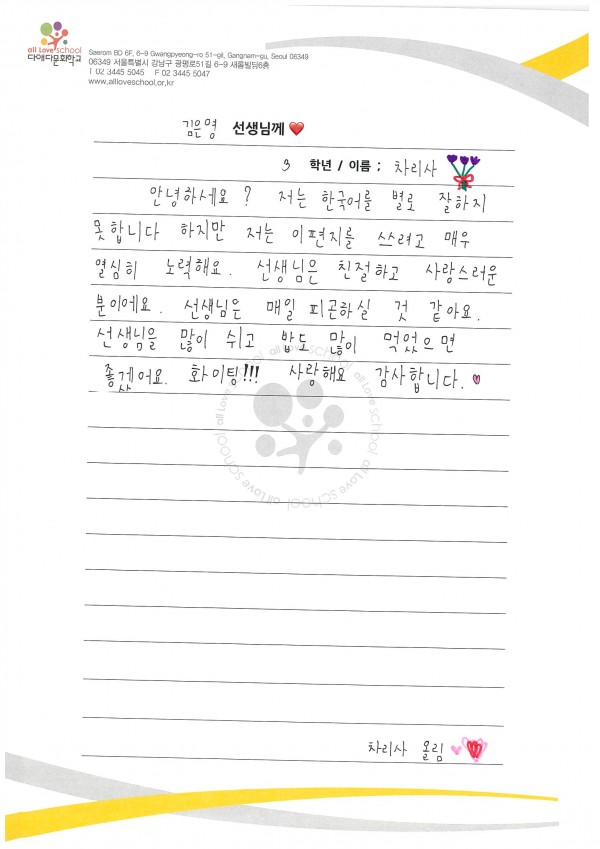 all Love school
다애다문화학교
Saerom BD 6F, 6-9 Gwangpyeong-ro 51-gil, Gangnam-gu, Seoul 06349
06349 서울특별시 강남구 광평로51길 6-9 새롬빌딩6층
T 02 3445 5045 F 02 3445 5047
www.alloveschool.or.kr
김은영 선생님께
3 학년 / 이름 ; 차리사
안녕하세요? 저는 한국어를 별로 잘하지
못합니다 하지만 저는 이편지를 쓰려고 매우
열심히 노력해요. 선생님은 친절하고 사랑스러운
분이에요. 선생님은 매일 피곤하실 것 같아요.
선생님을 많이 쉬고 밥도 많이 먹었으면
좋겠어요. 화이팅!!! 사랑해요 감사합니다.
all Love school all Love school all Love school all Love school
차리사 올림